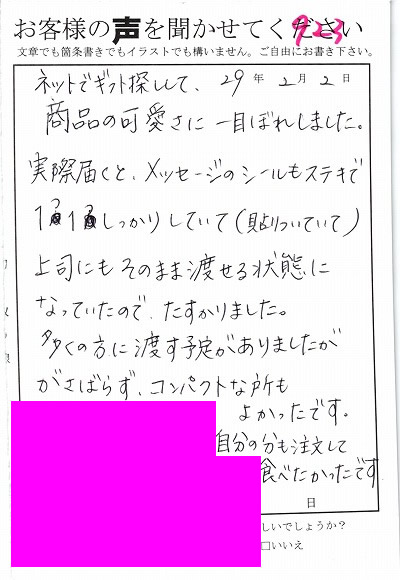 お客様の声を聞かせてください
923
文章でも箇条書きでもイラストでも構いません。ご自由にお書き下さい。
ネットでギフト探しして、 29年2月2日
商品の可愛さに一目ぼれしました。
実際届くと、メッセージのシールもステキで
1つ1つしっかりしていて(貼りついていて)
上司にもそのまま渡せる状態に
なっていたので、たすかりました。
多くの方に渡す予定がありましたが
がさばらず、コンパクトな所も
よかったです。
自分の分も注文して
食べたかったです
日
しいでしょうか?
□いいえ